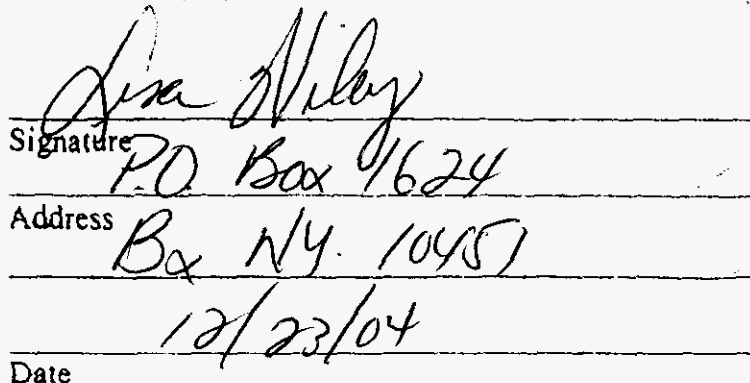 Lisa Wiley
Signature
P.O. Box 1624
Address
Bx NY. 10451
12/23/04
Date